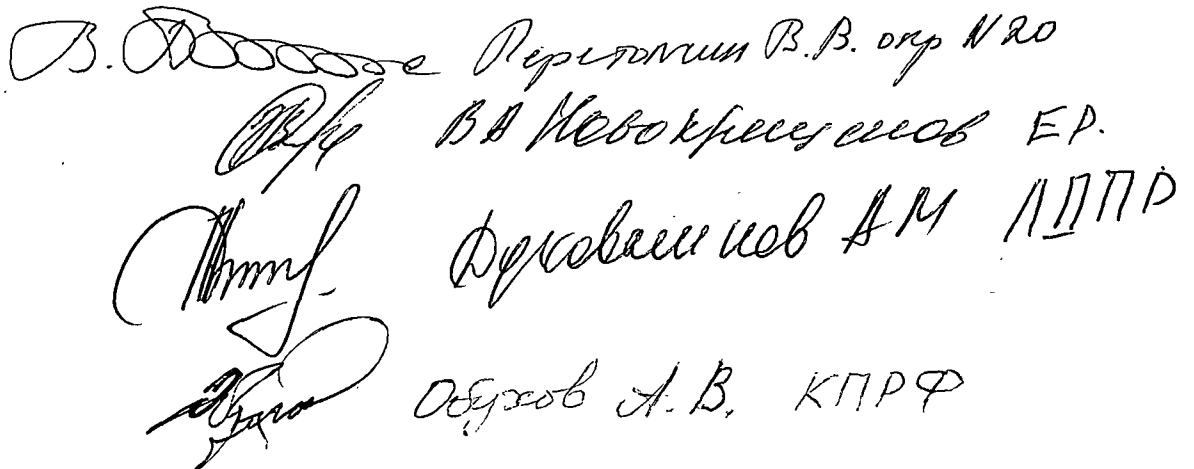 Перетолчин В.В. окр N 20
ВА Новокрещенов ЕР.
Духовников АМ ЛДПР
Обухов А.В. КПРФ